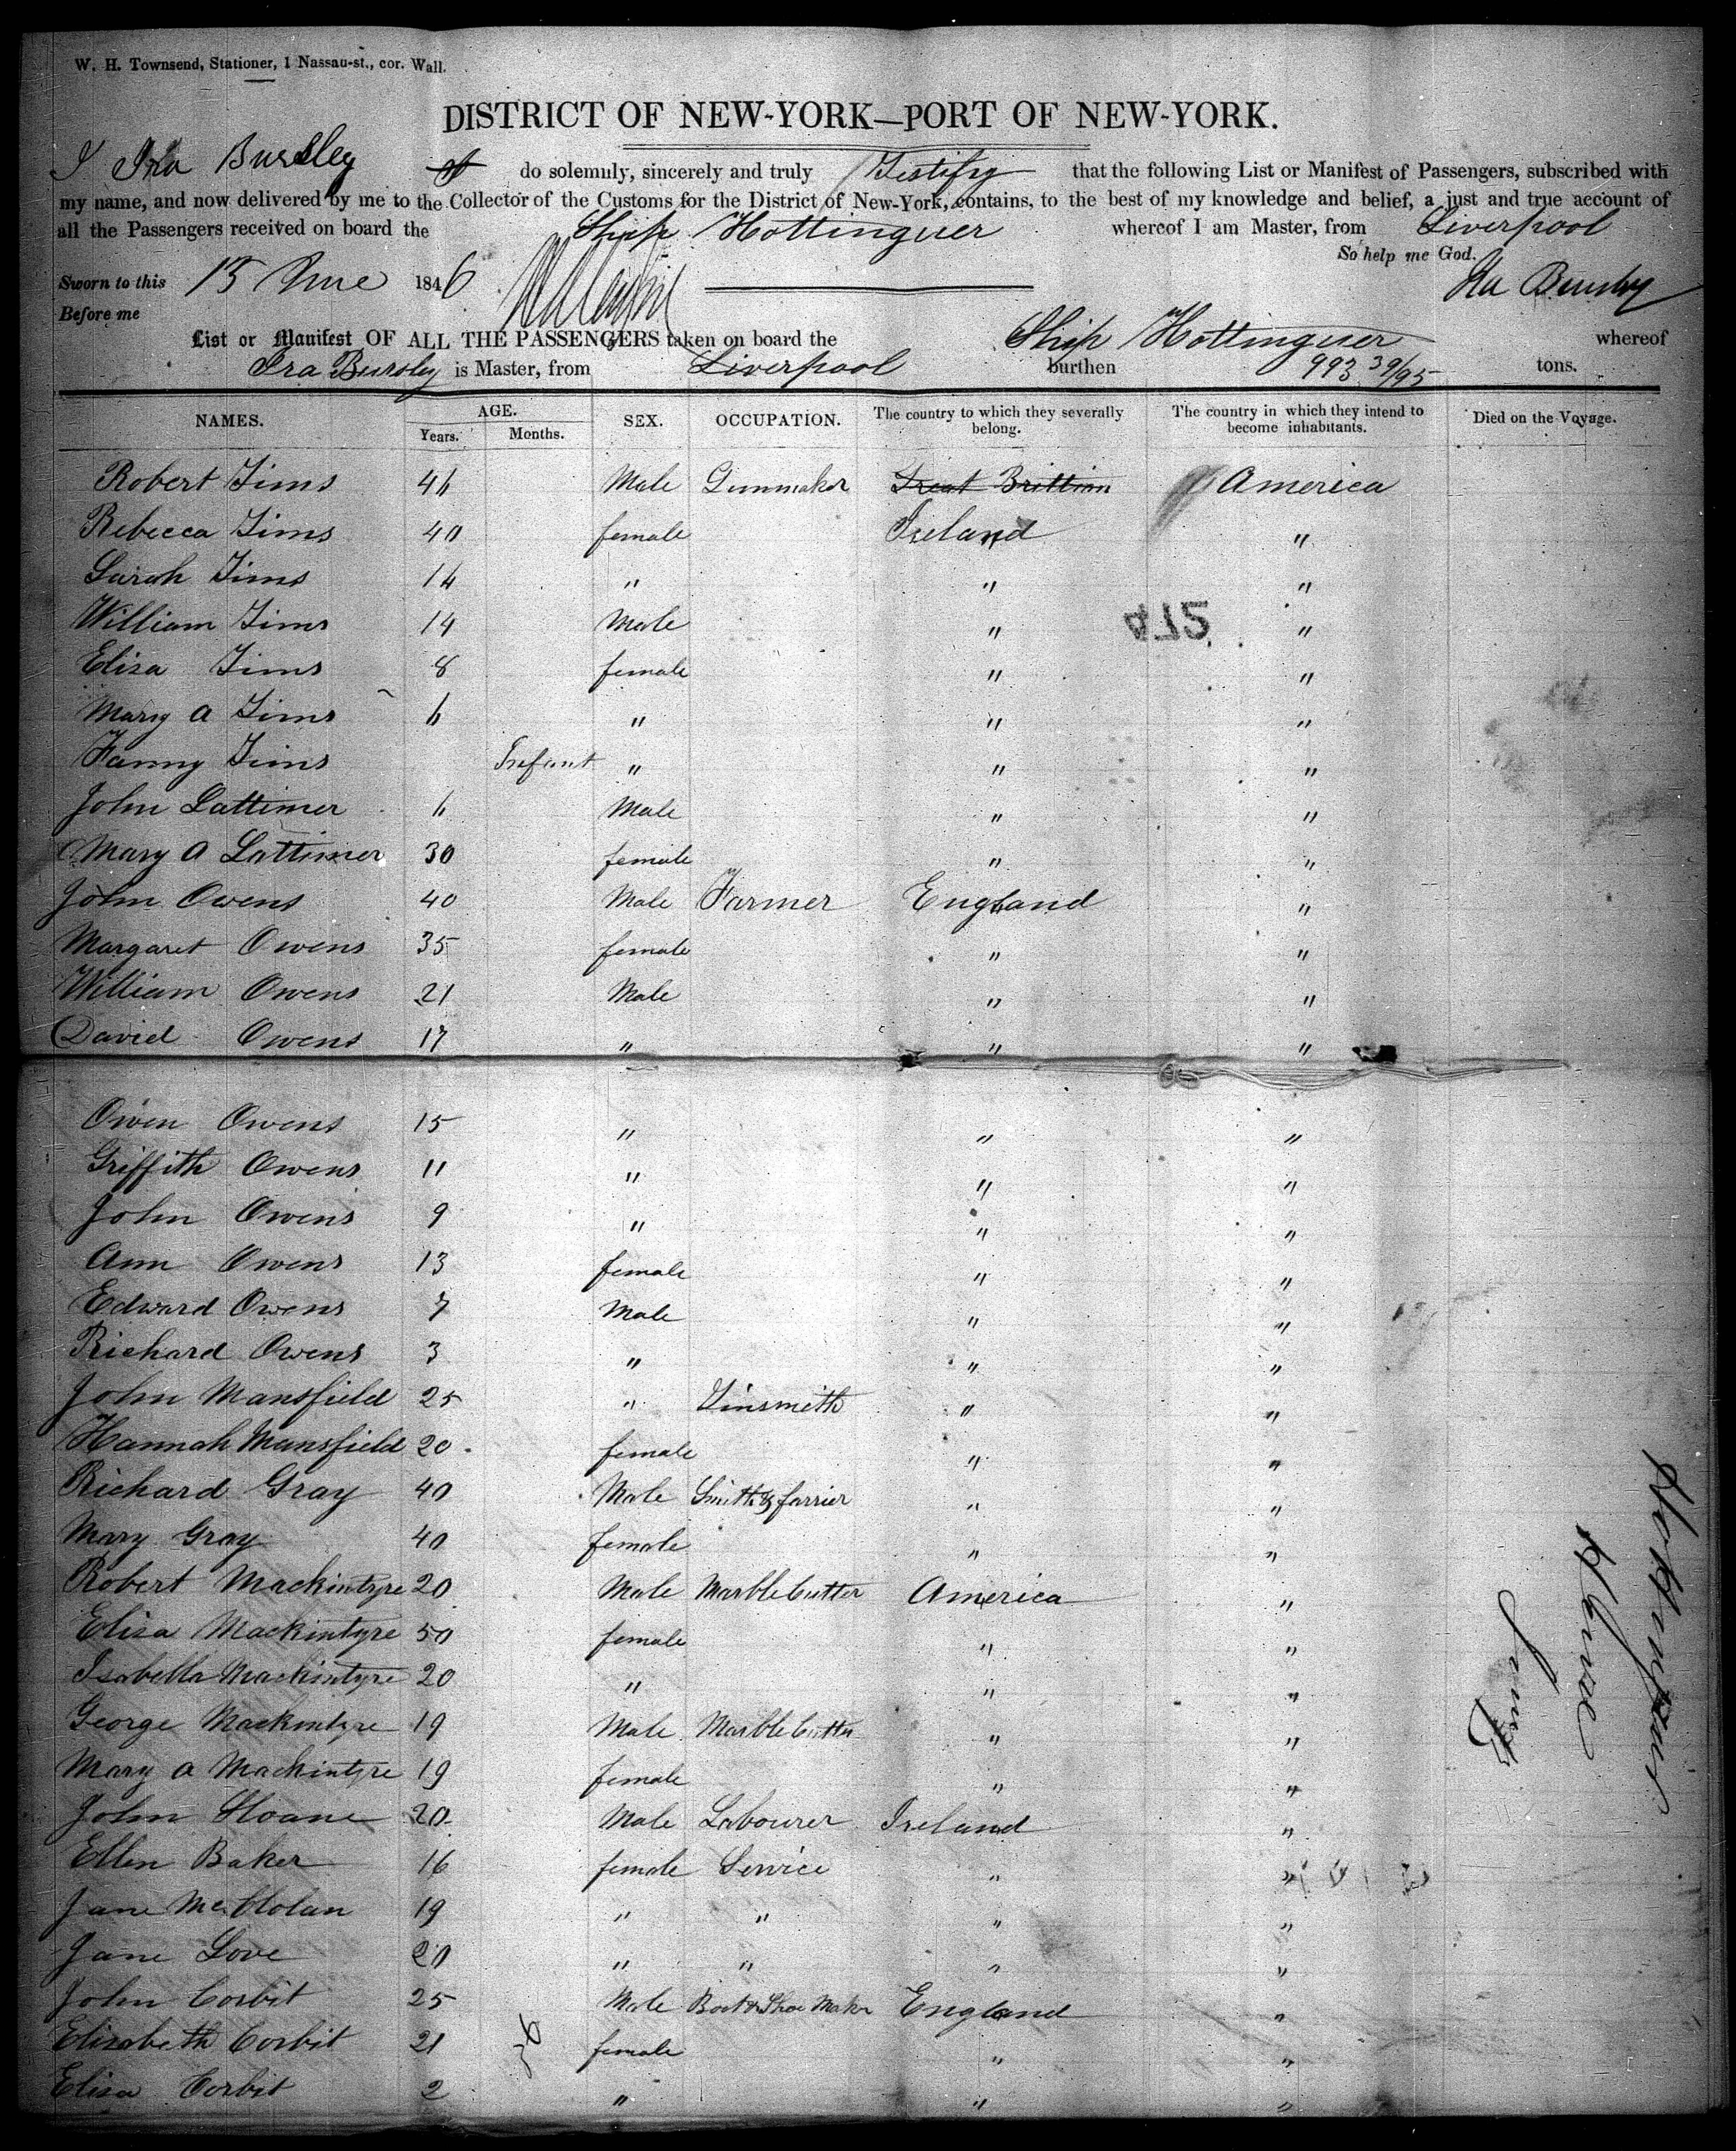 W. H. Townsend, Stationer, 1 Nassau-st., cor. Wall.
DISTRICT OF NEW-YORK—PORT OF NEW-YORK.
I Ira Bursley do solemnly, sincerely and truly Testify that the following List or Manifest of Passengers, subscribed with
my name, and now delivered by me to the Collector of the Customs for the District of New-York, contains, to the best of my knowledge and belief, a just and true account of
all the Passengers received on board the Ship Hottinguer whereof I am Master, from Liverpool
So help me God.
Sworn to this 15 June 1846 Ira Bursley
Before me
List or Manifest OF ALL THE PASSENGERS taken on board the Ship Hottinguer whereof
Ira Bursley is Master, from Liverpool burthen 993 39/95 tons.
NAMES. AGE. Years. Months. SEX. OCCUPATION. The country to which they severally belong. The country in which they intend to become inhabitants. Died on the Voyage.
Robert Tims 46 Male Gunmaker Great Brittian America
Rebecca Tims 40 female Ireland "
Sarah Tims 16 " " "
William Tims 14 Male " "
472
Eliza Tims 8 female " "
Mary A Tims 6 " " "
Fanny Tims Infant " " "
John Lattimer 6 Male " "
Mary A Lattimer 30 female " "
John Owens 40 Male Farmer England "
Margaret Owens 35 female " "
William Owens 21 Male " "
David Owens 17 " " "
Owen Owens 15 " " "
Griffith Owens 11 " " "
John Owens 9 " " "
Ann Owens 13 female " "
Edward Owens 7 Male " "
Richard Owens 3 " " "
John Mansfield 25 " Tinsmith " "
Hannah Mansfield 20 female " "
Richard Gray 40 Male Smith & farrier " "
Mary Gray 40 female " "
Robert Mackintyre 20 Male Marble Cutter America "
Eliza Mackintyre 50 female " "
Isabella Mackintyre 20 " " "
George Mackintyre 19 Male Marble Cutter " "
Mary A Mackintyre 19 female " "
John Sloane 20 Male Labourer Ireland "
Ellen Baker 16 female Service " "
Jane 19 " " " "
Jane Love 20 " " " "
John Corbit 25 Male Boot & Shoe Maker England "
Elizabeth Corbit 21 female " "
36
Eliza Corbit 2 " " "
Hottinguer
June